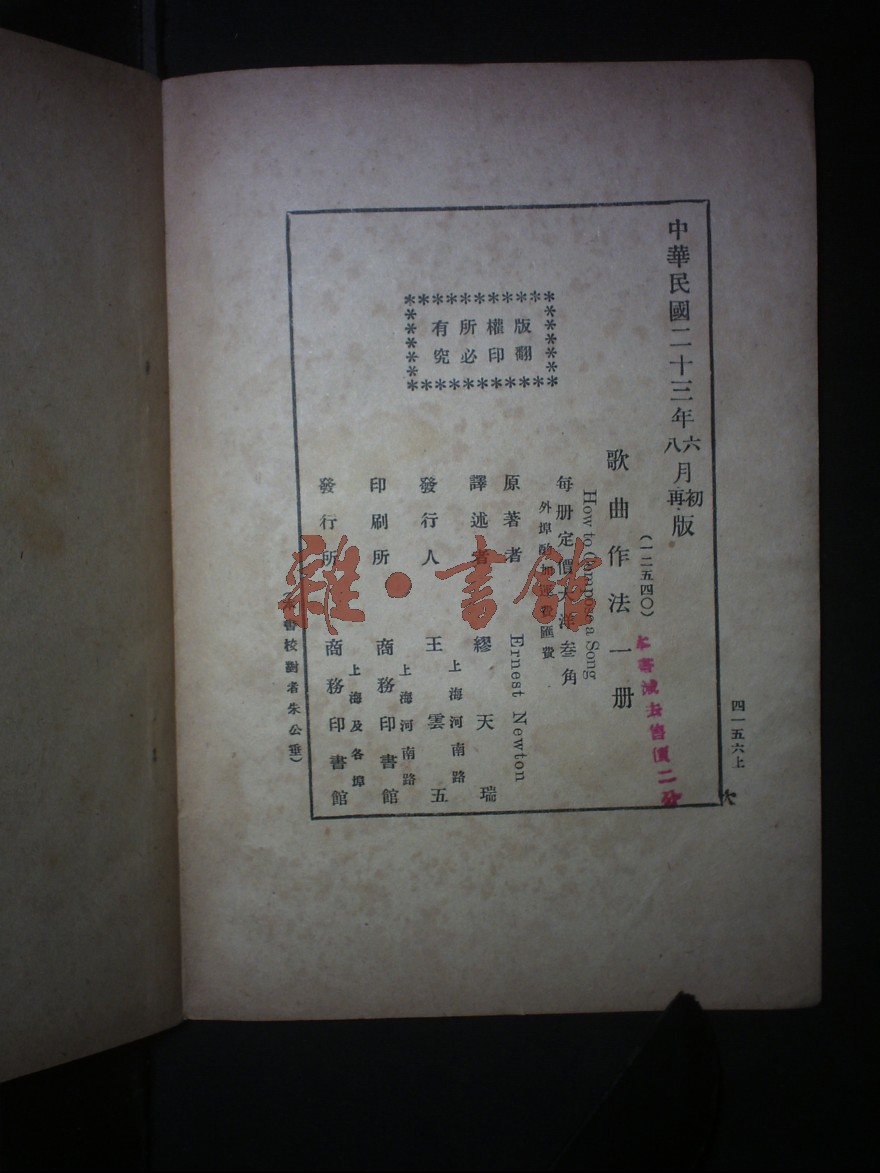 中華民國二十三年六月初版
八 再
四一五六上
(一二五四〇)
歌曲作法一册
How to Compose a Song
每册定價大洋叁角
外埠酌加運費匯費
原著者 Ernest Newton
譯述者 繆天瑞
發行人 王雲五
上海河南路
印刷所 商務印書館
上海河南路
發行所 商務印書館
上海及各埠
版權所有
翻印必究
本書校對者朱公垂)
本書減去售價二分
雜·書館